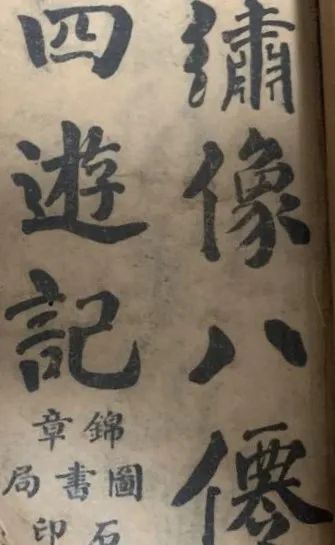 繡像八僊
四遊記
錦章
圖書局
石印